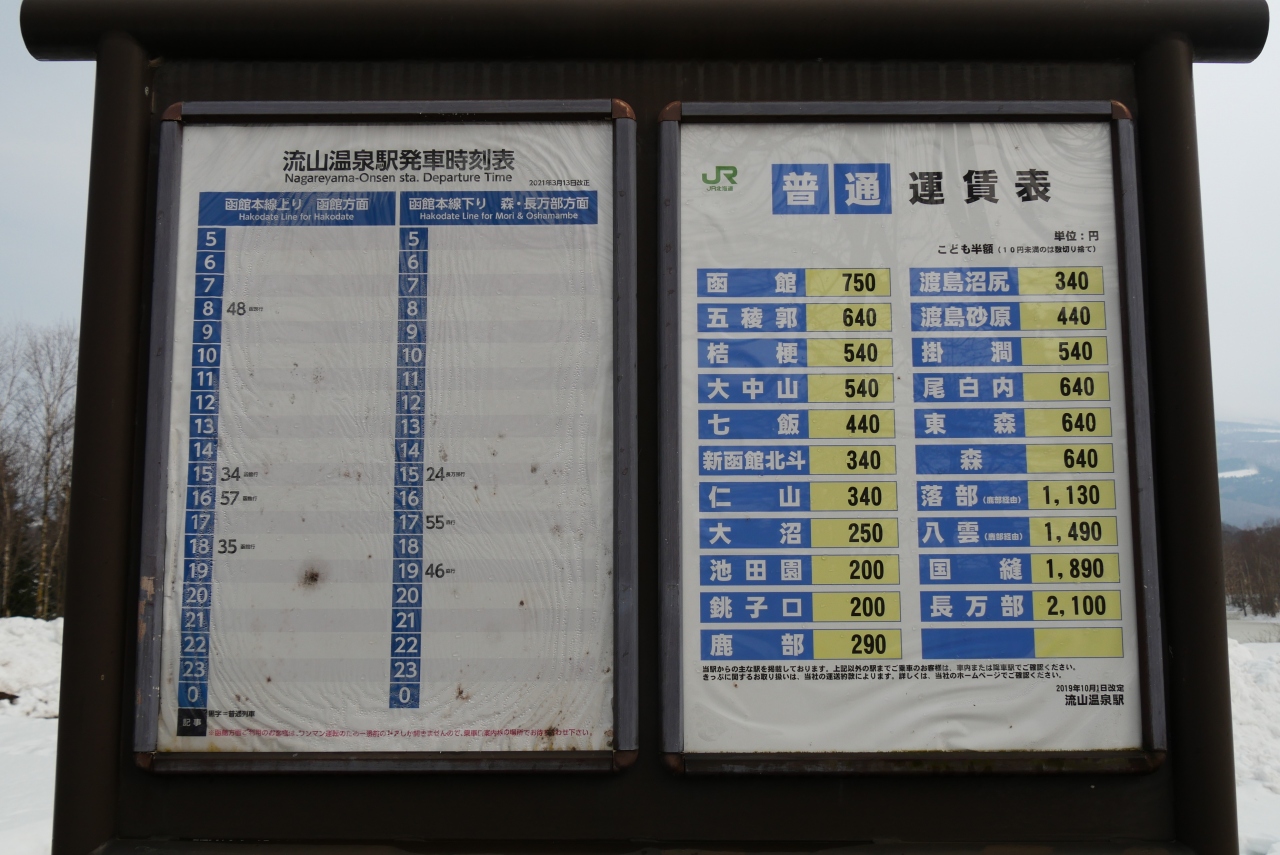 流山温泉駅発車時刻表
Nagareyama-Onsen sta. Departure Time
2021年3月13日改正
函館本線上り 函館方面
Hakodate Line for Hakodate
5
6
7
8 48 函館行
9
10
11
12
13
14
15 34 函館行
16 57 函館行
17
18 35 函館行
19
20
21
22
23
0
函館本線下り 森・長万部方面
Hakodate Line for Mori & Oshamambe
5
6
7
8
9
10
11
12
13
14
15 24 長万部行
16
17 55 森行
18
19 46 森行
20
21
22
23
0
記事 黒字=普通列車
JR
JR北海道
普通運賃表
単位:円
こども半額(10円未満のは数切り捨て)
函館 750
五稜郭 640
桔梗 540
大中山 540
七飯 440
新函館北斗 340
仁山 340
大沼 250
池田園 200
銚子口 200
鹿部 290
渡島沼尻 340
渡島砂原 440
掛澗 540
尾白内 640
東森 640
森 640
落部(鹿部経由) 1,130
八雲(鹿部経由) 1,490
国縫 1,890
長万部 2,100
当駅からの主な駅を掲載しております。上記以外の駅までご乗車のお客様は、車内または降車駅でご確認ください。
きっぷに関するお取り扱いは、当社の運送約款によります。詳しくは、当社のホームページでご確認ください。
2019年10月1日改定
流山温泉駅